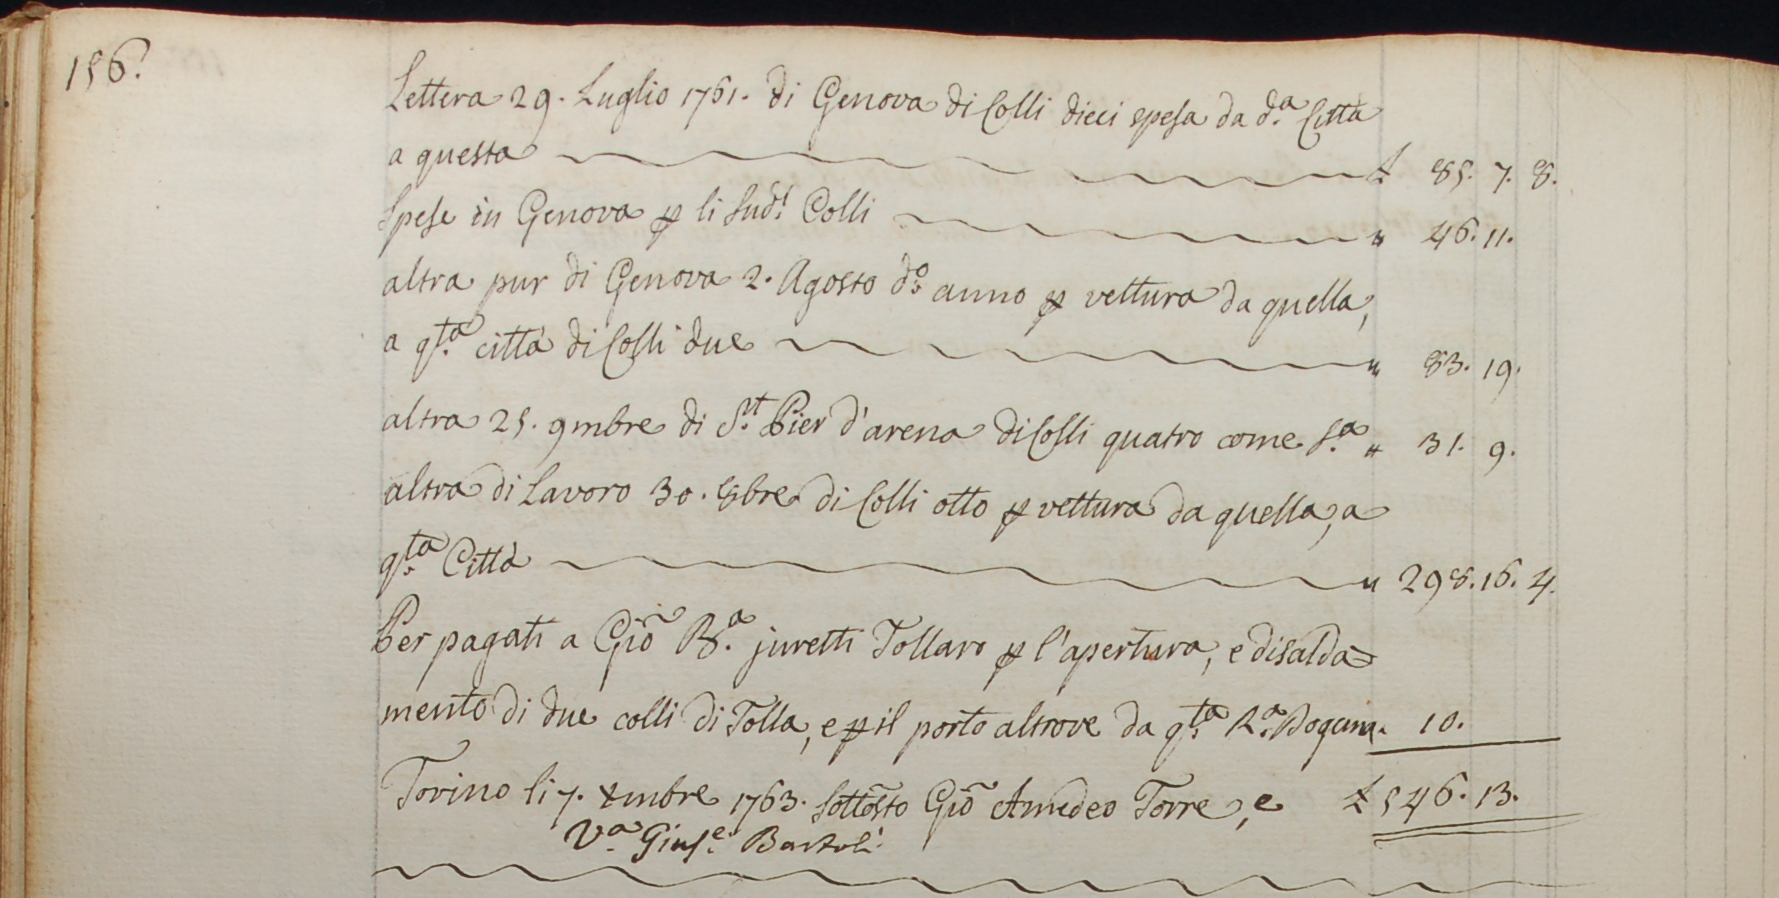 156.
Lettera 29. Luglio 1761. di Genova di Colli dieci spesa da d.a Città
a questa £ 85. 7. 8.
Spese in Genova p li sud.i Colli " 46. 11.
altra pur di Genova 2. Agosto d.o anno p vettura da quella,
a q.ta città di Colli due " 83. 19.
altra 25. 9mbre di S.t Pier d'arena di Colli quatro come s.a " 31. 9.
altra di Lavoro 30. Xbre di Colli otto p vettura da quella, a
q.ta Città " 298. 16. 4.
Per pagati a Gio B.a juretti Tollaro p l'apertura, e disalda=
mento di due colli di Tolla, e p il porto altrove da q.ta R.a Dogana. 10.
Torino li 7. Xmbre 1763. sottosto Gio Amedeo Torre, e £ 546. 13.
V.a Gius.e Bartoli